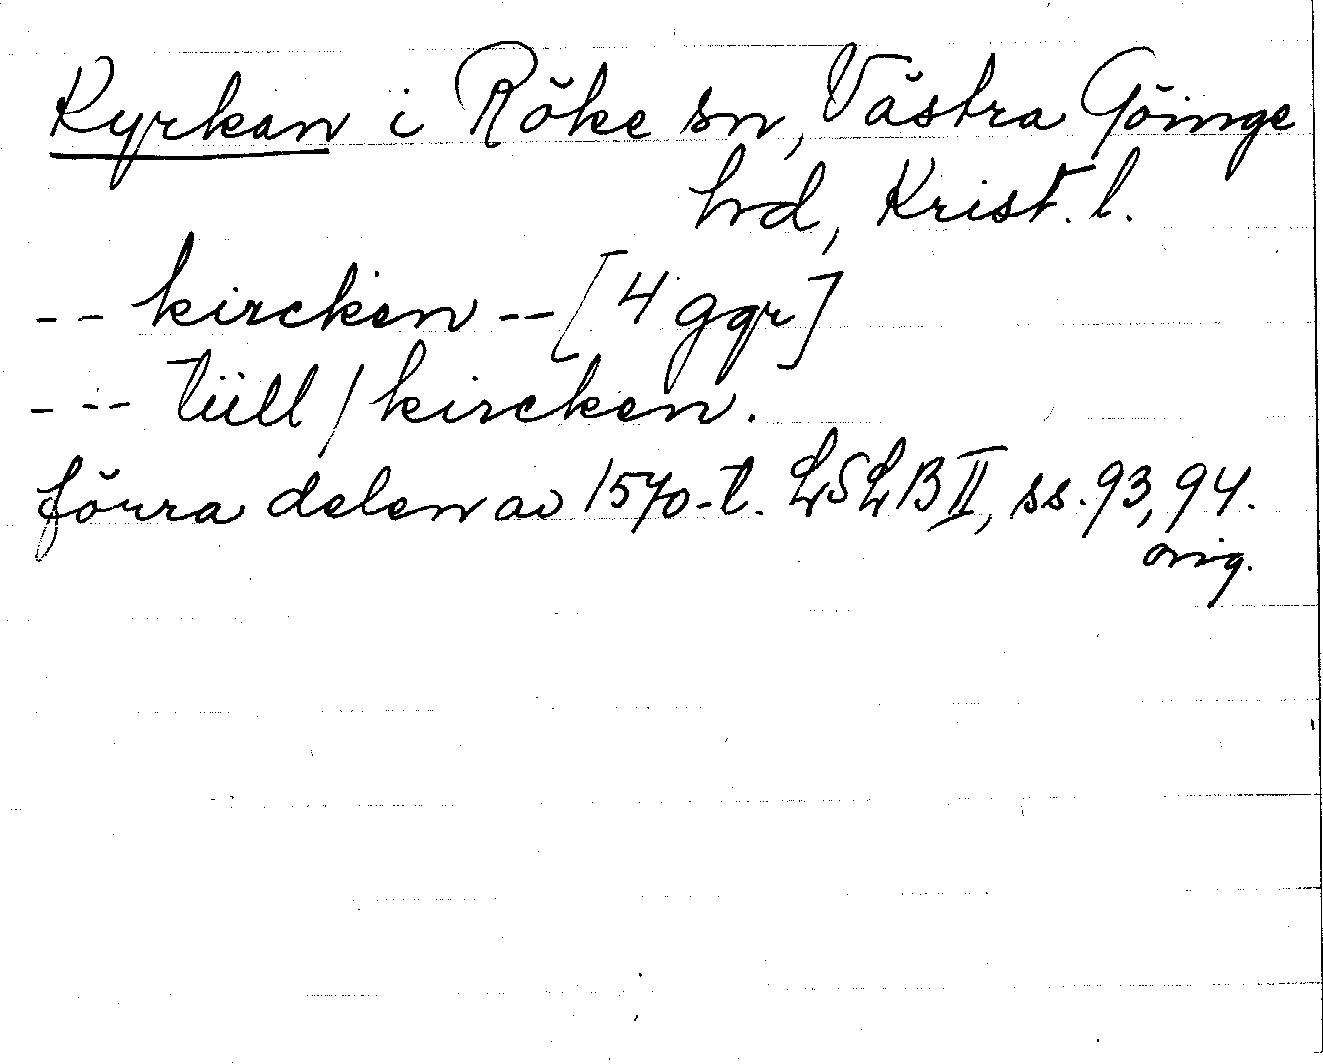 Kyrkan i Röke sn, Västra Göinge
hrd, Krist. l.
-- kircken -- [4 ggr]
--- tüll / kircken.
förra delen av 1570-t. LSLB II, ss. 93, 94.
orig.